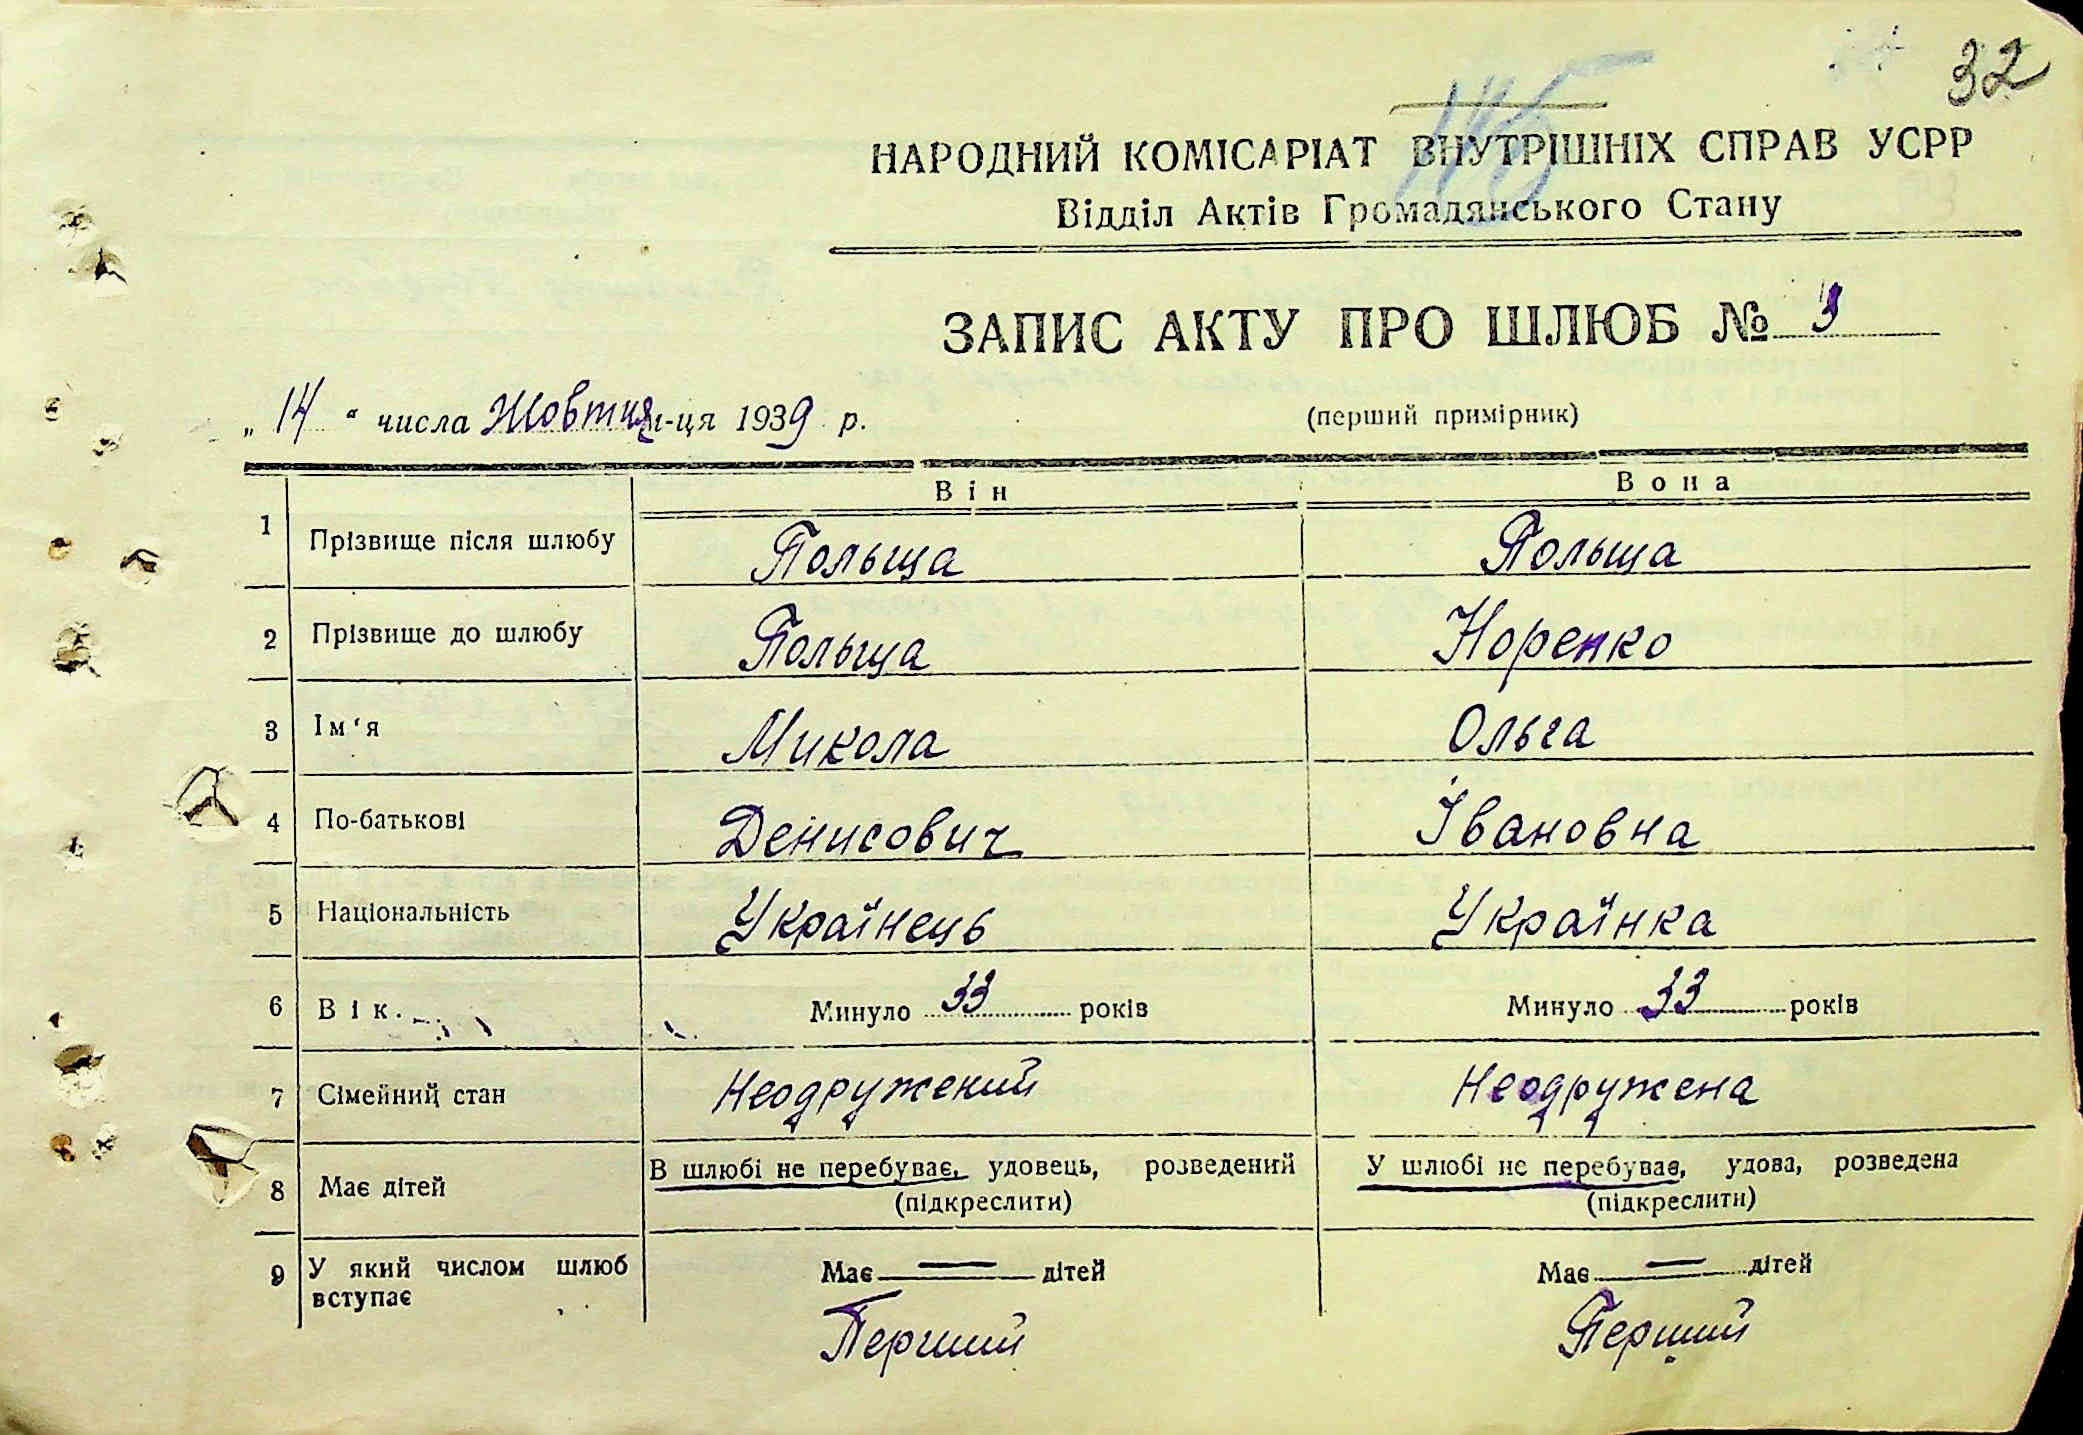 32
НАРОДНИЙ КОМІСАРІАТ ВНУТРІШНІХ СПРАВ УСРР
Відділ Актів Громадянського Стану
ЗАПИС АКТУ ПРО ШЛЮБ № 3
„ 14 “ числа Жовтня м-ця 1939 р.
(перший примірник)
Він Вона
1 Прізвище після шлюбу Польща Польща
2 Прізвище до шлюбу Польща Норенко
3 Ім‘я Микола Ольга
4 По-батькові Денисович Івановна
5 Національність Українець Українка
6 Вік. Минуло 33 років Минуло 33 років
7 Сімейний стан Неодружений Неодружена
8 Має дітей В шлюбі не перебуває, удовець, розведений У шлюбі не перебуває, удова, розведена
(підкреслити) (підкреслити)
9 У який числом шлюб вступає Має — дітей Має — дітей
Перший Перший